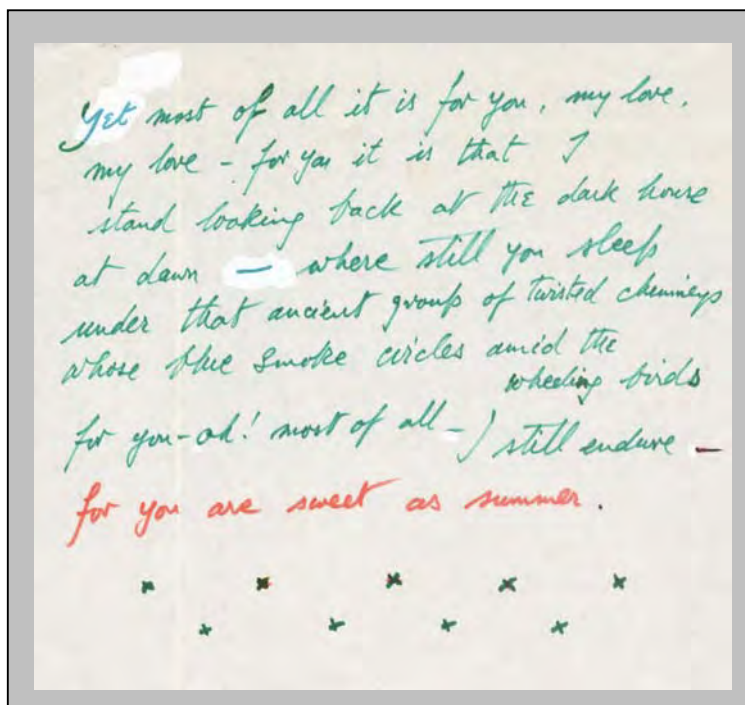 Yet most of all it is for you, my love,
my love – for you it is that I
stand looking back at the dark house
at dawn — where still you sleep
under that ancient group of twisted chimneys
whose blue smoke circles amid the
wheeling birds
for you – oh! most of all – I still endure —
for you are sweet as summer.
x x x x x
x x x x